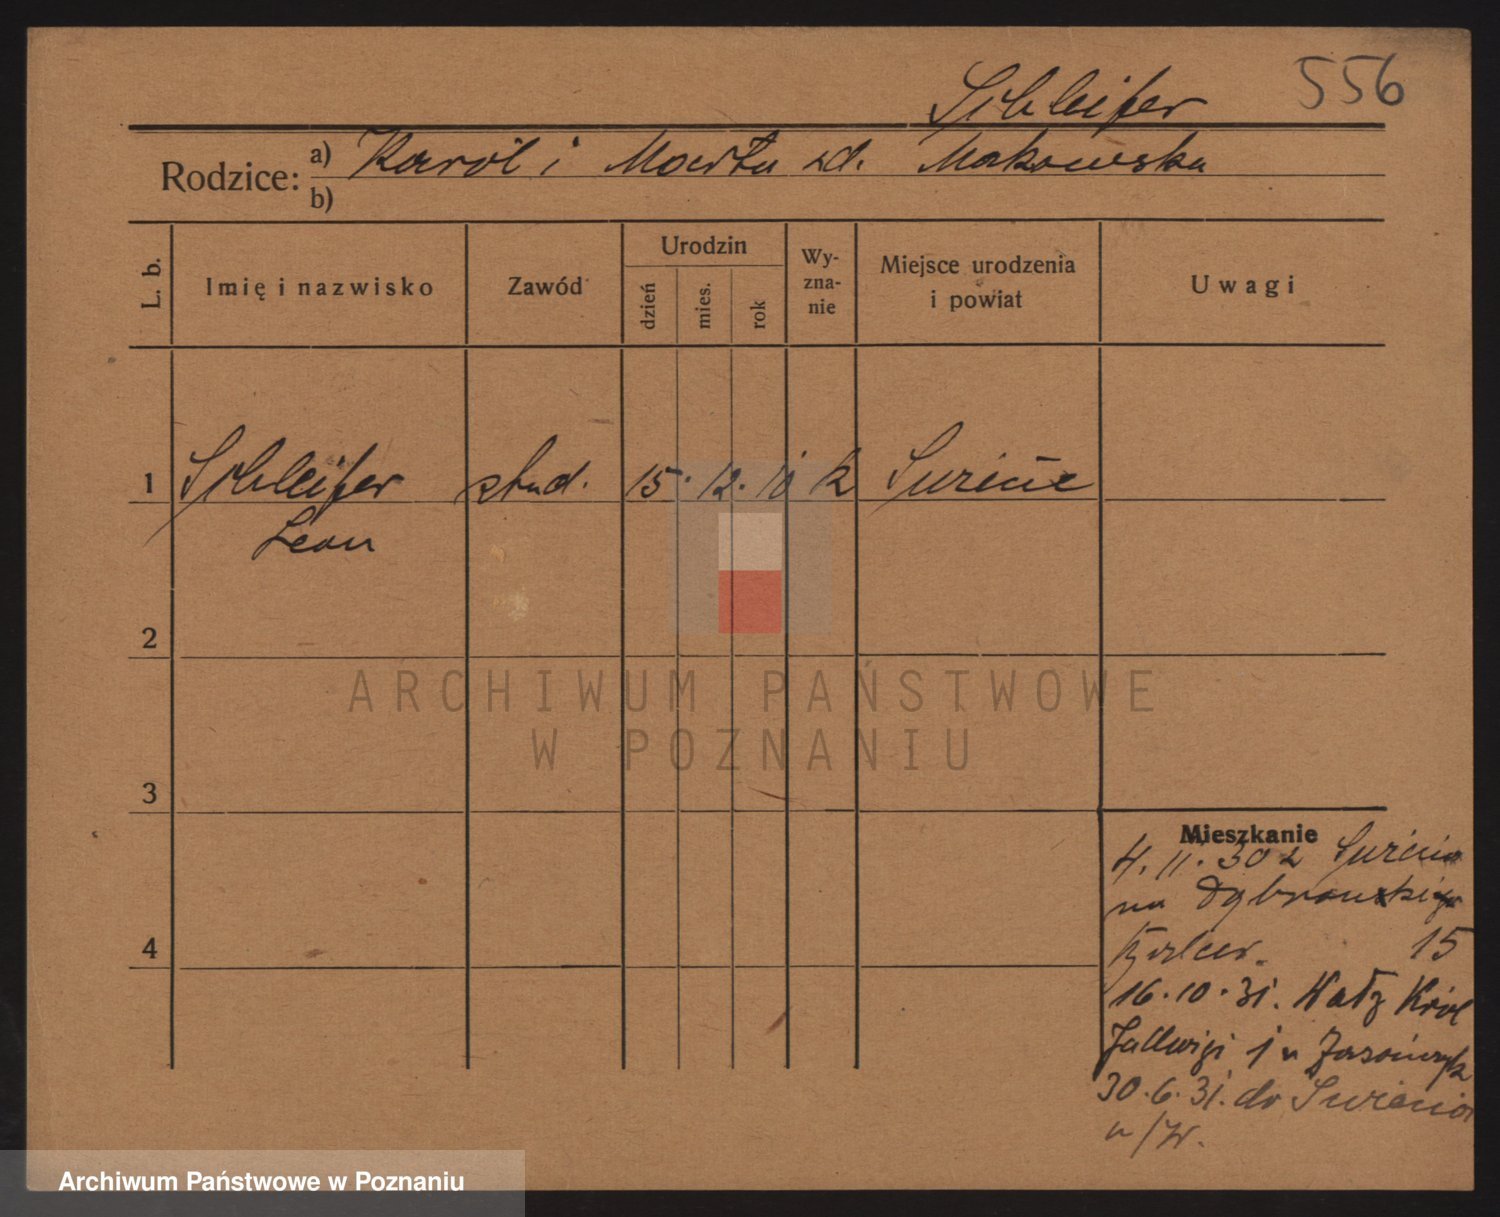 556
Schleifer
Rodzice: a) Karól i Marta zd. Makowska
b)
L. b. Imię i nazwisko Zawód Urodzin dzień mies. rok Wyznanie Miejsce urodzenia i powiat Uwagi
1 Schleifer stud. 15. 12. 10 k
Leon
2
3
4
Mieszkanie
4. 11. 30 z
na Dąbrowskiego
15
16. 10. 31. Wały Król
Jadwigi 1 u
30. 6. 31. do
n/W.
ARCHIWUM PAŃSTWOWE
W POZNANIU
Archiwum Państwowe w Poznaniu